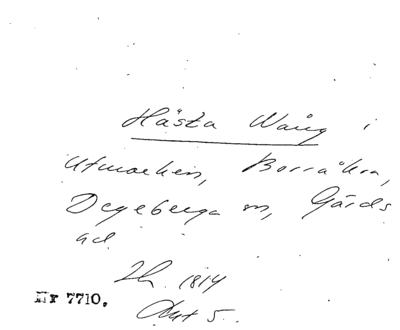 Hästa Wång i
Utmarken, Borråkra,
Degeberga sn, Gärds
hd
Lh. 1814
Akt 5.
Nr 7710.